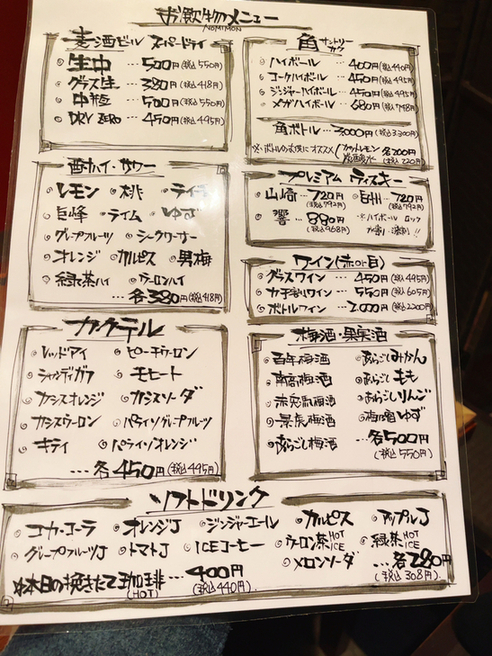 お飲物メニュー
NOMIMON
麦酒ビール スーパードライ
生中 … 500円(税込550円)
グラス生 … 380円(税込418円)
中瓶 … 500円(税込550円)
DRY ZERO … 450円(税込495円)
角 サントリーカク
ハイボール … 400円(税込440円)
コークハイボール … 450円(税込495円)
ジンジャーハイボール … 450円(税込495円)
メガハイボール … 680円(税込748円)
角ボトル … 3000円(税込3300円)
※ボトルのお供にオススメ カットレモン 炭酸水 各200円(税込220円)
酎ハイ・サワー
レモン 桃 ライチ
巨峰 ライム ゆず
グレープフルーツ シークワーサー
オレンジ カルピス 男梅
緑茶ハイ ウーロンハイ
… 各380円(税込418円)
プレミアムウィスキー
山崎 … 720円(税込792円) 白州 … 720円(税込792円)
響 … 880円(税込968円) ※ハイボール ロック
ワイン(赤or白)
グラスワイン … 450円(税込495円)
カチ割りワイン … 550円(税込605円)
ボトルワイン … 2,000円(税込2,200円)
カクテル
レッドアイ ピーチウーロン
シャンディガフ モヒート
カシスオレンジ カシスソーダ
カシスウーロン パライソグレープフルーツ
キティ パライソオレンジ
… 各450円(税込495円)
梅酒・果実酒
百年梅酒 あらごしみかん
南高梅酒 あらごしもも
赤兎馬梅酒 あらごしりんご
黒糖梅酒 梅乃宿ゆず
あらごし梅酒 … 各500円
(税込550円)
ソフトドリンク
コカ・コーラ オレンジJ ジンジャーエール カルピス アップルJ
グレープフルーツJ トマトJ ICEコーヒー ウーロン茶 HOT ICE 緑茶 HOT ICE
メロンソーダ … 各280円
(税込308円)
☆本日の挽きたて珈琲 … 400円
(HOT) (税込440円)